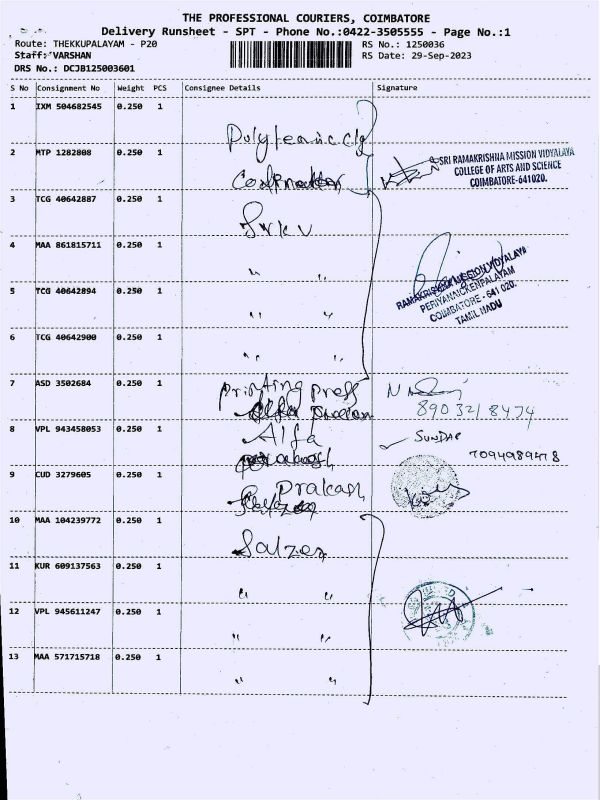 THE PROFESSIONAL COURIERS, COIMBATORE
Delivery Runsheet - SPT - Phone No.:0422-3505555 - Page No.:1
Route: THEKKUPALAYAM - P20 RS No.: 1250036
Staff: VARSHAN RS Date: 29-Sep-2023
DRS No.: DCJB125003601
S No Consignment No Weight PCS Consignee Details Signature
1 IXM 504682545 0.250 1
Polyteanic clg
2 MTP 1282808 0.250 1
SRI RAMAKRISHNA MISSION VIDYALAYA
COLLEGE OF ARTS AND SCIENCE
COIMBATORE-641020.
3 TCG 40642887 0.250 1
Srkv
4 MAA 861815711 0.250 1 " "
RAMAKRISHNA MISSION VIDYALAYA
PERIYANAICKENPALAYAM
COIMBATORE - 641 020.
TAMIL NADU
5 TCG 40642894 0.250 1 " "
6 TCG 40642900 0.250 1 " "
7 ASD 3502684 0.250 1 Printing press
8903218474
8 VPL 943458053 0.250 1 Alfa SUNDAR
7094989478
9 CUD 3279605 0.250 1
Prakash
10 MAA 104239772 0.250 1
Salzer
11 KUR 609137563 0.250 1 " "
12 VPL 945611247 0.250 1 " "
13 MAA 571715718 0.250 1 " "